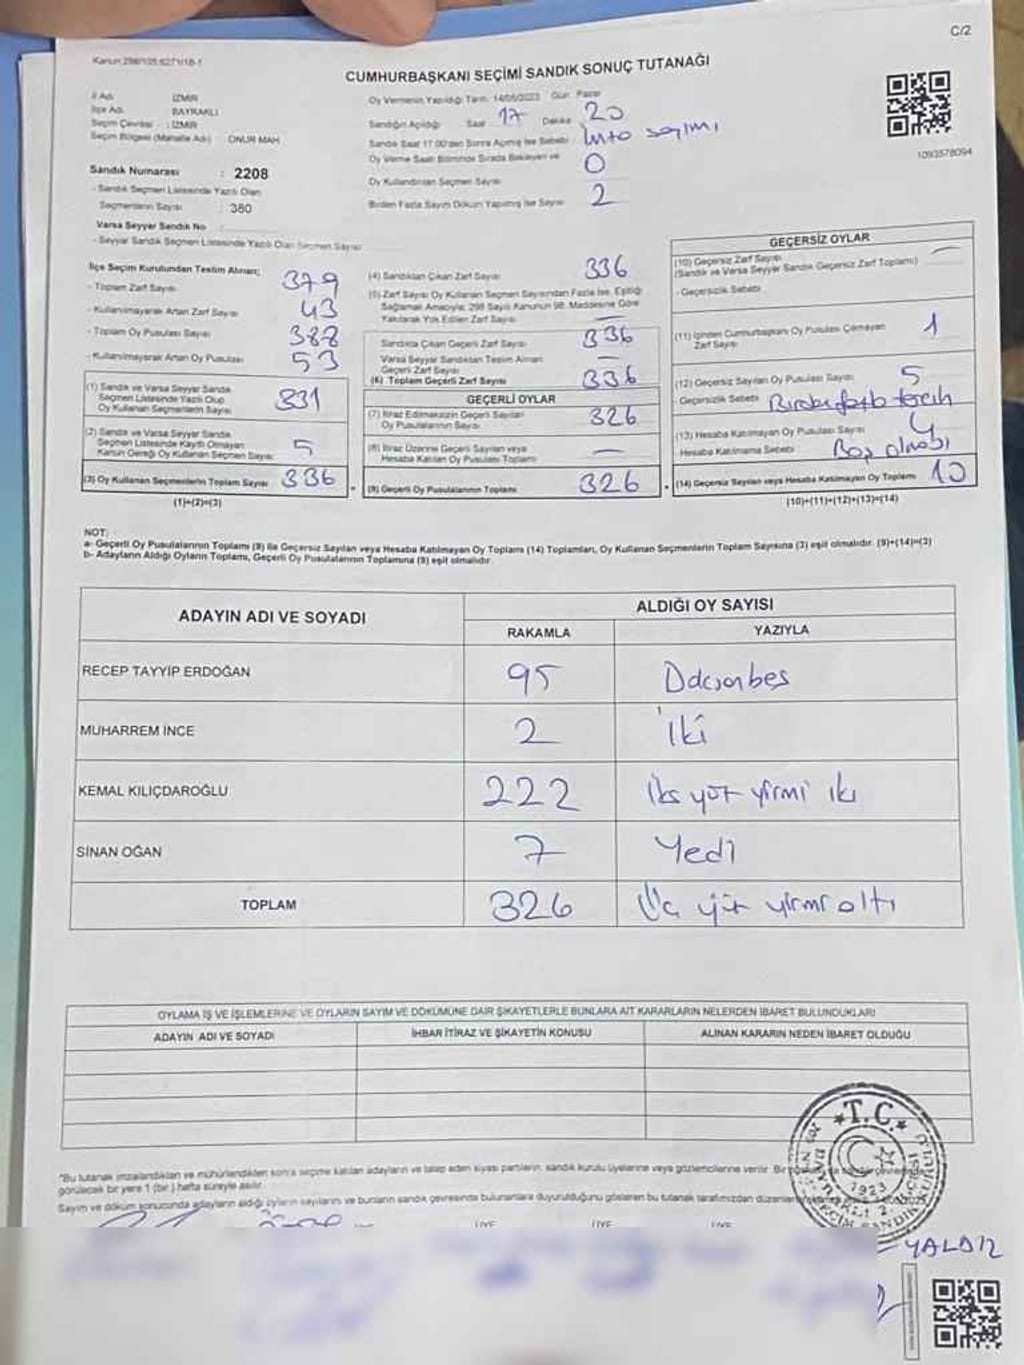 C/2
Kanun:298/105,6271/18-1
CUMHURBAŞKANI SEÇİMİ SANDIK SONUÇ TUTANAĞI
İl Adı : İZMİR
İlçe Adı : BAYRAKLI
Seçim Çevresi : İZMİR
Seçim Bölgesi (Mahalle Adı) : ONUR MAH
Sandık Numarası : 2208
- Sandık Seçmen Listesinde Yazılı Olan
Seçmenlerin Sayısı : 380
Varsa Seyyar Sandık No
- Seyyar Sandık Seçmen Listesinde Yazılı Olan Seçmen Sayısı
Oy Vermenin Yapıldığı Tarih: 14/05/2023 Gün: Pazar
Sandığın Açıldığı Saat 17 Dakika 20
Sandık Saat 17.00'den Sonra Açılmış İse Sebebi sayımı
Oy Verme Saati Bitiminde Sırada Bekleyen ve
Oy Kullandırılan Seçmen Sayısı 0
Birden Fazla Sayım Döküm Yapılmış İse Sayısı 2
1093578094
İlçe Seçim Kurulundan Teslim Alınan;
- Toplam Zarf Sayısı 379
- Kullanılmayarak Artan Zarf Sayısı 43
- Toplam Oy Pusulası Sayısı 388
- Kullanılmayarak Artan Oy Pusulası 53
(1) Sandık ve Varsa Seyyar Sandık
Seçmen Listesinde Yazılı Olup
Oy Kullanan Seçmenlerin Sayısı 331
(2) Sandık ve Varsa Seyyar Sandık
Seçmen Listesinde Kayıtlı Olmayan
Kanun Gereği Oy Kullanan Seçmen Sayısı 5
(3) Oy Kullanan Seçmenlerin Toplam Sayısı 336
(1)+(2)=(3)
(4) Sandıktan Çıkan Zarf Sayısı 336
(5) Zarf Sayısı Oy Kullanan Seçmen Sayısından Fazla İse, Eşitliği
Sağlamak Amacıyla, 298 Sayılı Kanunun 98. Maddesine Göre
Yakılarak Yok Edilen Zarf Sayısı —
Sandıkta Çıkan Geçerli Zarf Sayısı 336
Varsa Seyyar Sandıktan Teslim Alınan
Geçerli Zarf Sayısı —
(6) Toplam Geçerli Zarf Sayısı 336
GEÇERLİ OYLAR
(7) İtiraz Edilmeksizin Geçerli Sayılan
Oy Pusulalarının Sayısı 326
(8) İtiraz Üzerine Geçerli Sayılan veya
Hesaba Katılan Oy Pusulası Toplamı —
(9) Geçerli Oy Pusulalarının Toplamı 326
GEÇERSİZ OYLAR
(10) Geçersiz Zarf Sayısı —
(Sandık ve Varsa Seyyar Sandık Geçersiz Zarf Toplamı)
- Geçersizlik Sebebi
(11) İçinden Cumhurbaşkanı Oy Pusulası Çıkmayan
Zarf Sayısı 1
(12) Geçersiz Sayılan Oy Pusulası Sayısı 5
- Geçersizlik Sebebi tercih
(13) Hesaba Katılmayan Oy Pusulası Sayısı 4
Hesaba Katılmama Sebebi Boş olması
(14) Geçersiz Sayılan veya Hesaba Katılmayan Oy Toplamı 10
(10)+(11)+(12)+(13)=(14)
NOT:
a- Geçerli Oy Pusulalarının Toplamı (9) ile Geçersiz Sayılan veya Hesaba Katılmayan Oy Toplamı (14) Toplamları, Oy Kullanan Seçmenlerin Toplam Sayısına (3) eşit olmalıdır. (9)+(14)=(3)
b- Adayların Aldığı Oyların Toplamı, Geçerli Oy Pusulalarının Toplamına (9) eşit olmalıdır
ADAYIN ADI VE SOYADI
ALDIĞI OY SAYISI
RAKAMLA YAZIYLA
RECEP TAYYİP ERDOĞAN 95 Doksanbeş
MUHARREM İNCE 2 İki
KEMAL KILIÇDAROĞLU 222 iki yüz yirmi iki
SİNAN OĞAN 7 Yedi
TOPLAM 326 Üç yüz yirmi altı
OYLAMA İŞ VE İŞLEMLERİNE VE OYLARIN SAYIM VE DÖKÜMÜNE DAİR ŞİKAYETLERLE BUNLARA AİT KARARLARIN NELERDEN İBARET BULUNDUKLARI
ADAYIN ADI VE SOYADI İHBAR İTİRAZ VE ŞİKAYETİN KONUSU ALINAN KARARIN NEDEN İBARET OLDUĞU
*T.C.*
1923
"Bu tutanak imzalandıktan ve mühürlendikten sonra seçime katılan adayların ve talep eden siyasi partilerin, sandık kurulu üyelerine veya gözlemcilerine verilir. Bir
görülecek bir yere 1 (bir) hafta süreyle asılır.
Sayım ve döküm sonucunda adayların aldığı oyların sayılarını ve bunların sandık çevresinde bulunanlara duyurulduğunu gösteren bu tutanak tarafımızdan
ÜYE ÜYE ÜYE
YALDIZ